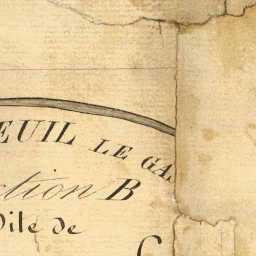 EUIL LE GA
ction B
Dite de